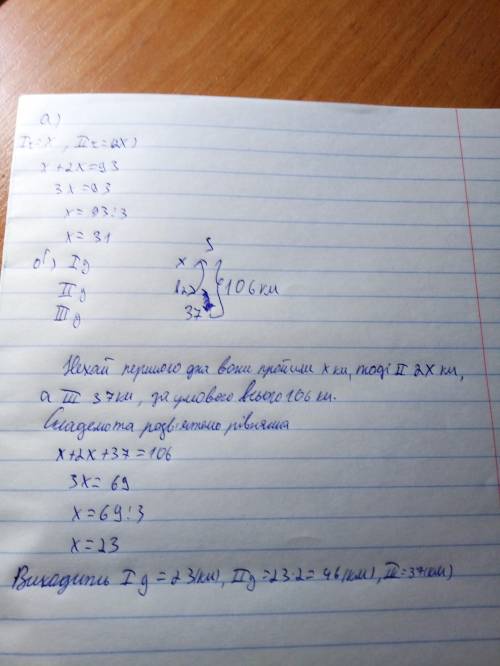 а)
Iт=x, IIт=2x)
x+2x=93
3x=93
x=93:3
x=31
S
б) I д x
II д 2x 106 км
III д 37
Нехай першого дня вони пройшли x км, тоді II 2x км,
а III 37 км, за умовою всього 106 км.
Складемо та розв'яжемо рівняння
x+2x+37=106
3x=69
x=69:3
x=23
Виходить I д =23(км), II д =23·2=46(км), III=37(км)